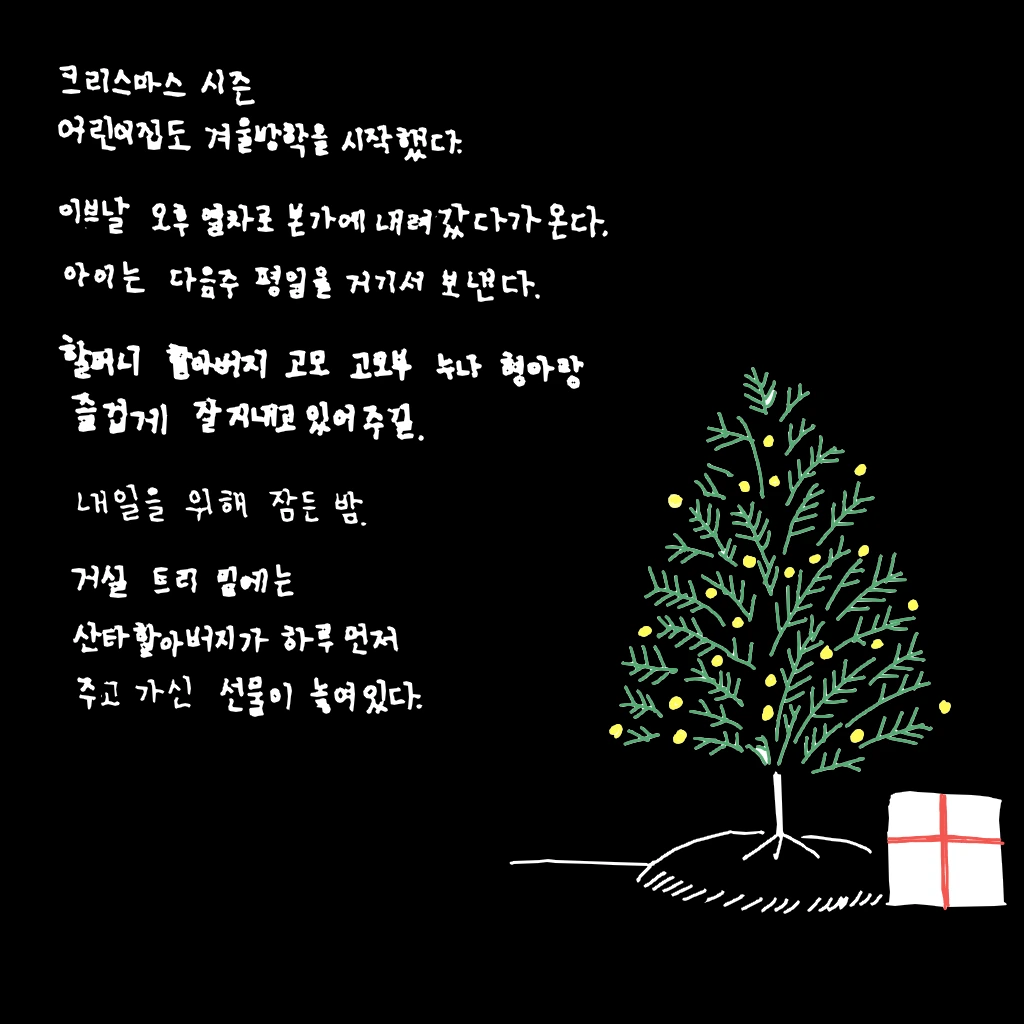 크리스마스 시즌
어린이집도 겨울방학을 시작했다.
이브날 오후 열차로 본가에 내려갔다가 온다.
아이는 다음주 평일을 거기서 보낸다.
할머니 할아버지 고모 고모부 누나 형아랑
즐겁게 잘 지내고 있어주길.
내일을 위해 잠든 밤.
거실 트리 밑에는
산타할아버지가 하루 먼저
주고 가신 선물이 놓여있다.